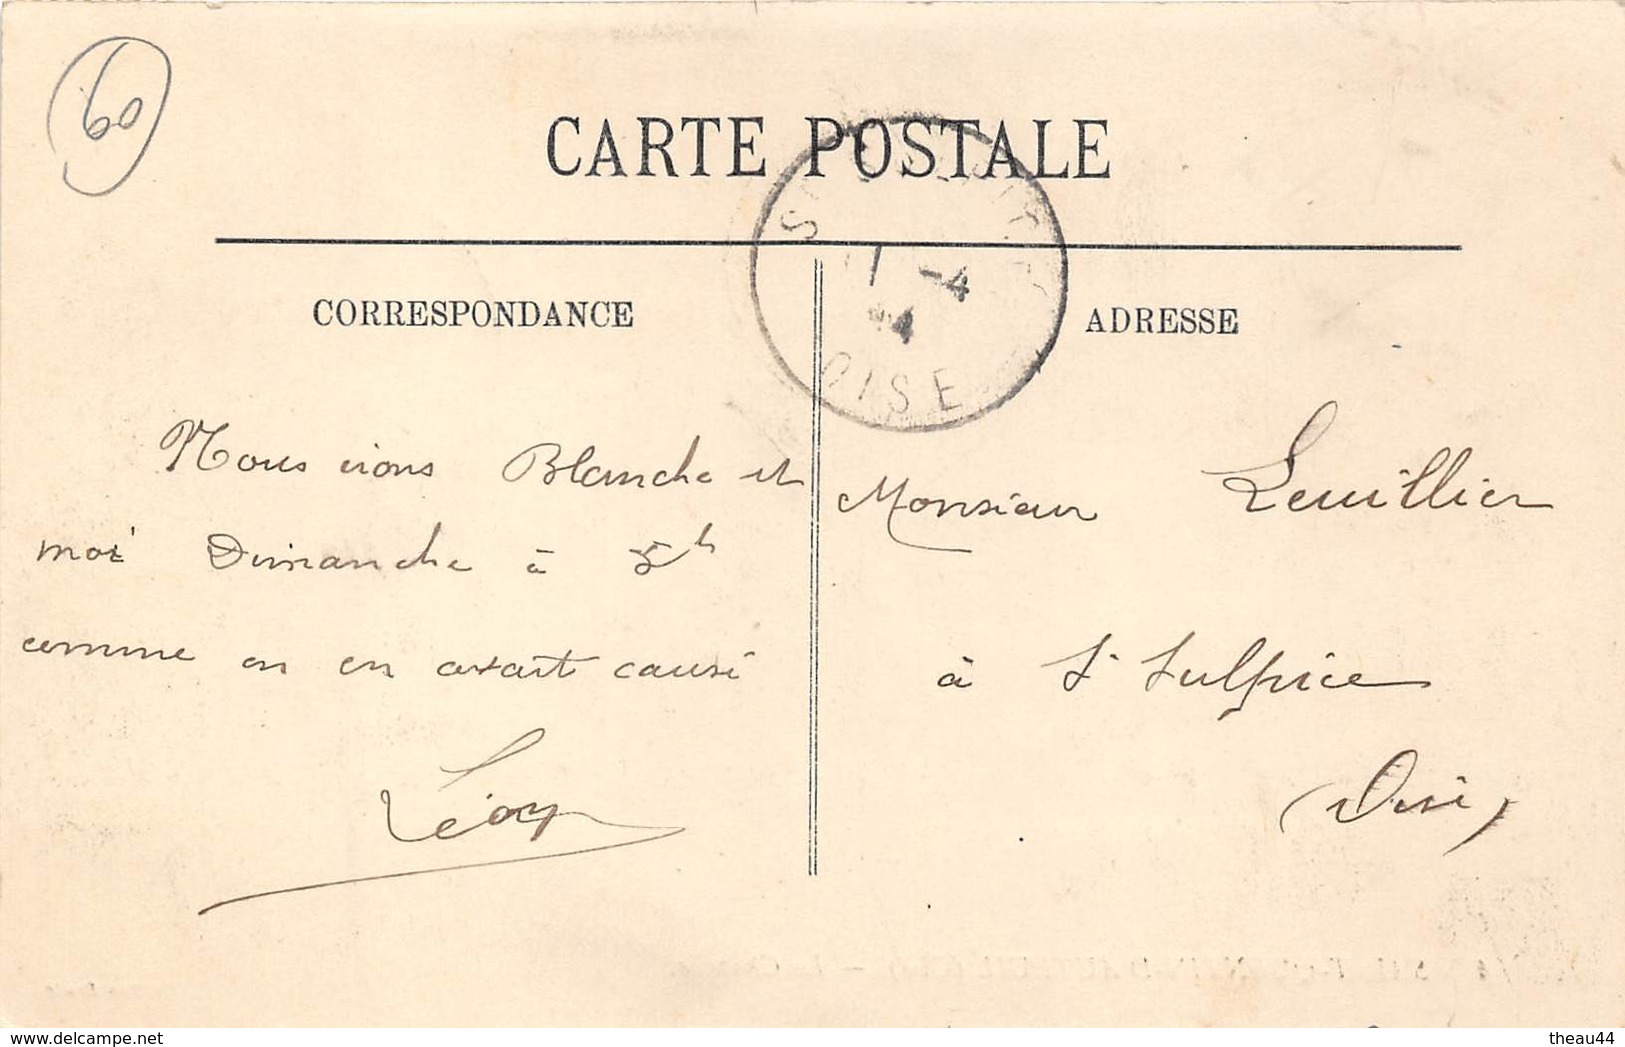 60
CARTE POSTALE
CORRESPONDANCE
ADRESSE
-4
OISE
Nous irons Blanche et
moi Dimanche à 5h
comme on en avait causé
Léon
Monsieur Leuillier
à St Sulpice
(Oise)
theau44